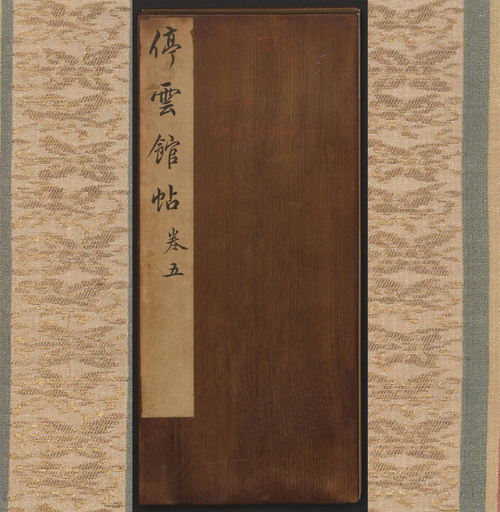 停雲館帖卷五